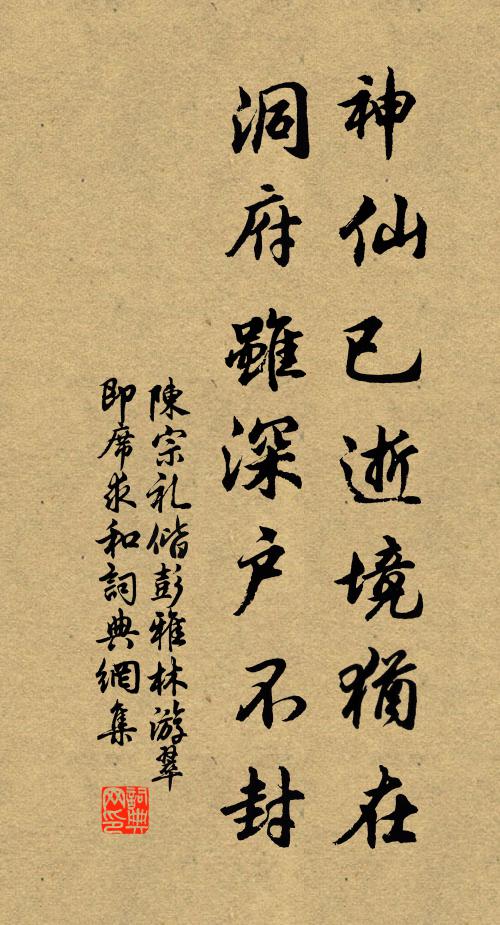 神仙已逝境猶在
洞府雖深戶不封
陳宗礼偕彭雅林游翠
即席求和詞典網集
詞典
网印